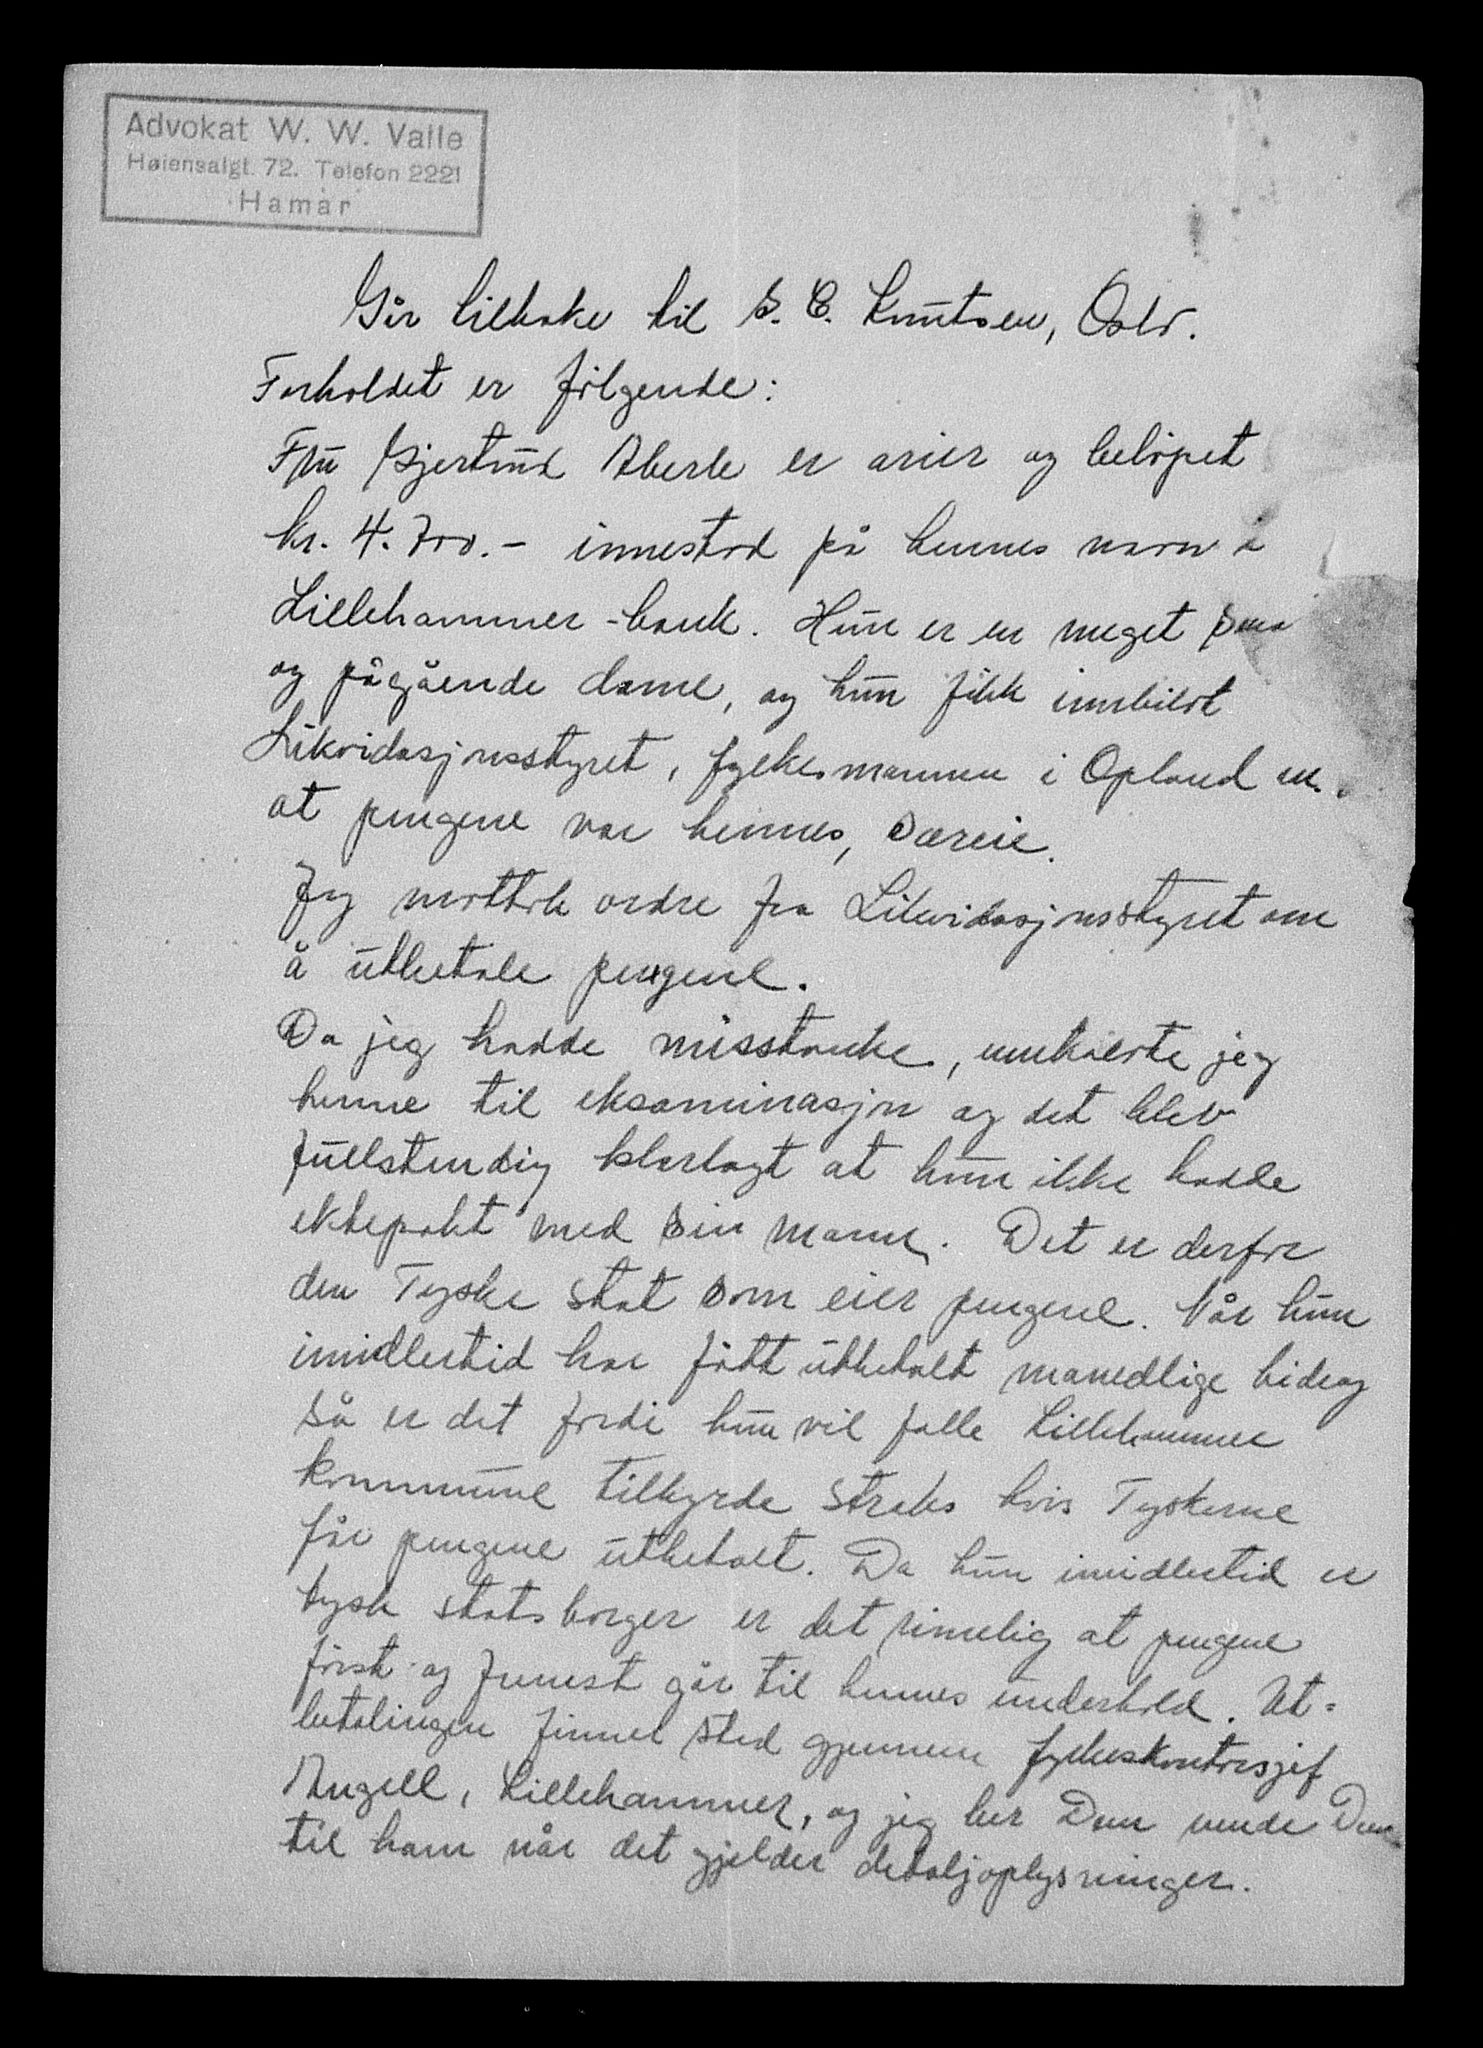 Advokat W. W. Valle
Høiensalgt. 72. Telefon 2221
Hamar
Går tilbake til S. C. Knutsen, Oslo.
Forholdet er følgende:
Fru Gjertrud Aberle er arier og beløpet
kr. 4.700.- innestod på hennes navn i
Lillehammer-bank. Hun er en meget
og pågående dame, og hun fikk innbilt
Likvidasjonsstyret, fylkesmannen i Opland m.
at pengene var hennes, særeie.
Jeg mottok ordre fra Likvidasjonsstyret om
å utbetale pengene.
Da jeg hadde misstanke, innkalte jeg
henne til eksaminasjon og det blev
fullstendig klarlagt at hun ikke hadde
ektepakt med sin mann. Det er derfor
den Tyske stat som eier pengene. Når hun
imidlertid har fått utbetalt månedlige bidrag
så er det fordi hun vil falle Lillehammer
kommune tilbyrde straks hvis Tyskerne
får pengene utbetalt. Da hun imidlertid er
tysk statsborger er det rimelig at pengene
først og fremst går til hennes underhold. Ut=
betalingen finner sted gjennem fylkeskontorsjef
Lillehammer, og jeg ber Dem vende Dem
til ham når det gjelder detaljoplysninger.